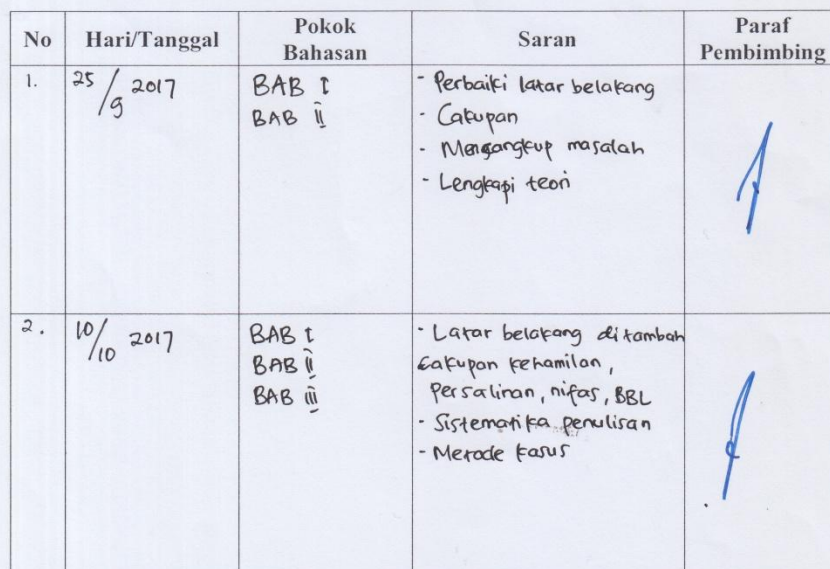 No Hari/Tanggal Pokok Bahasan Saran Paraf Pembimbing
1. 25/9 2017 BAB I - Perbaiki latar belakang
BAB II - Cakupan
- Mengangkup masalah
- Lengkapi teori
2. 10/10 2017 BAB I - Latar belakang ditambah
BAB II cakupan kehamilan,
BAB III persalinan, nifas, BBL
- Sistematika penulisan
- Metode kasus